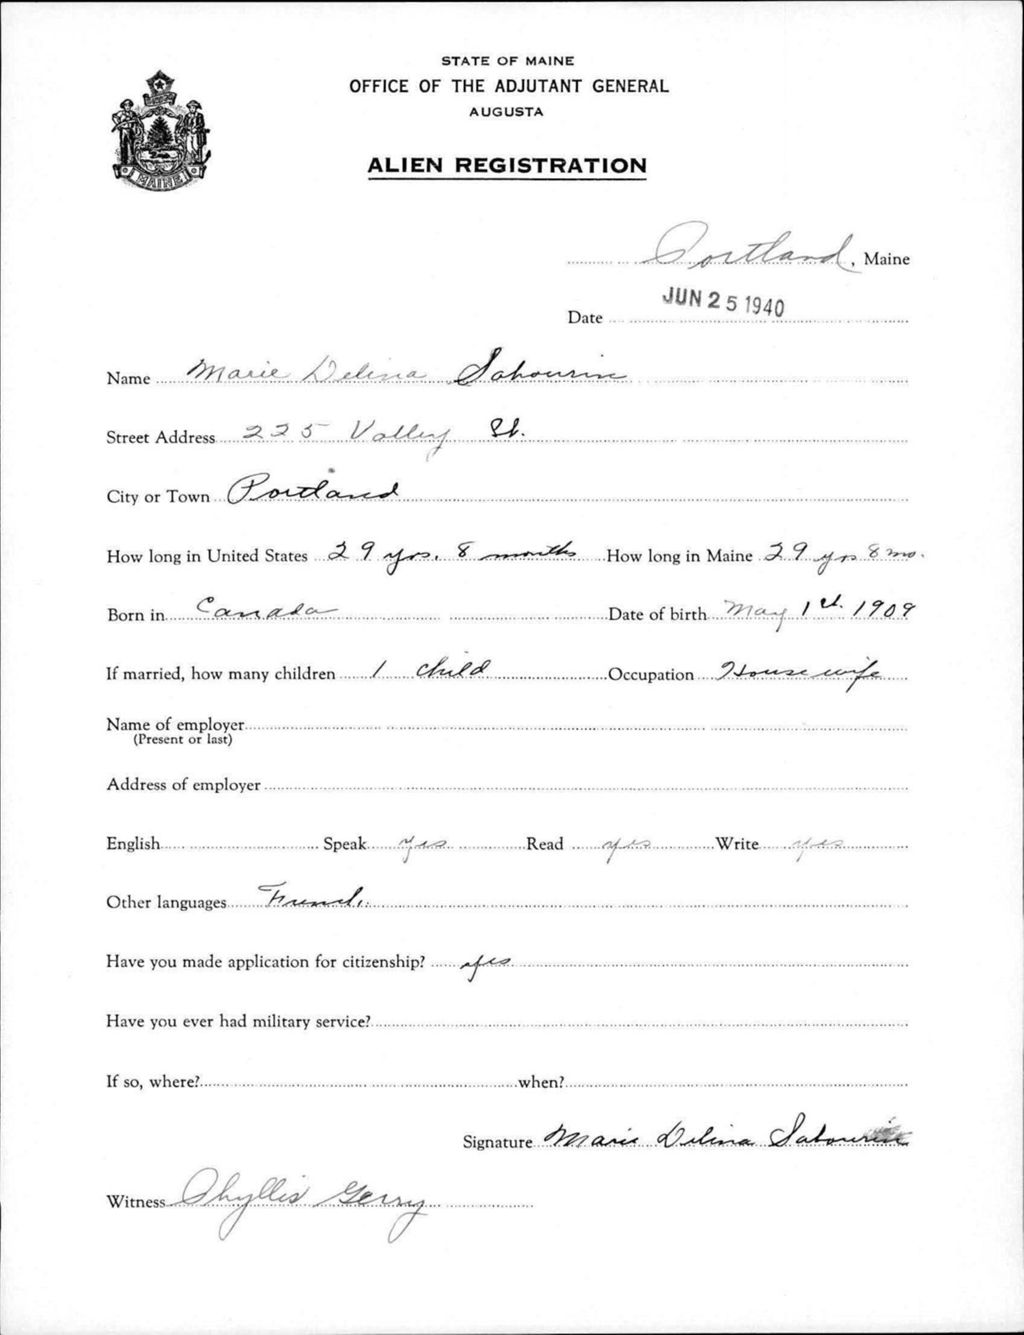 STATE OF MAINE
OFFICE OF THE ADJUTANT GENERAL
AUGUSTA
ALIEN REGISTRATION
MAINE
Portland, Maine
Date JUN 25 1940
Name Marie Delina Sabourin
Street Address 225 Valley St.
City or Town Portland
How long in United States 29 yrs. 8 months How long in Maine 29 yrs 8 mo.
Born in Canada Date of birth May 1st. 1909
If married, how many children 1 child Occupation Housewife
Name of employer
(Present or last)
Address of employer
English Speak yes Read yes Write yes
Other languages French.
Have you made application for citizenship? yes
Have you ever had military service?
If so, where? when?
Signature Marie Delina Sabourin
Witness Phyllis Gerry